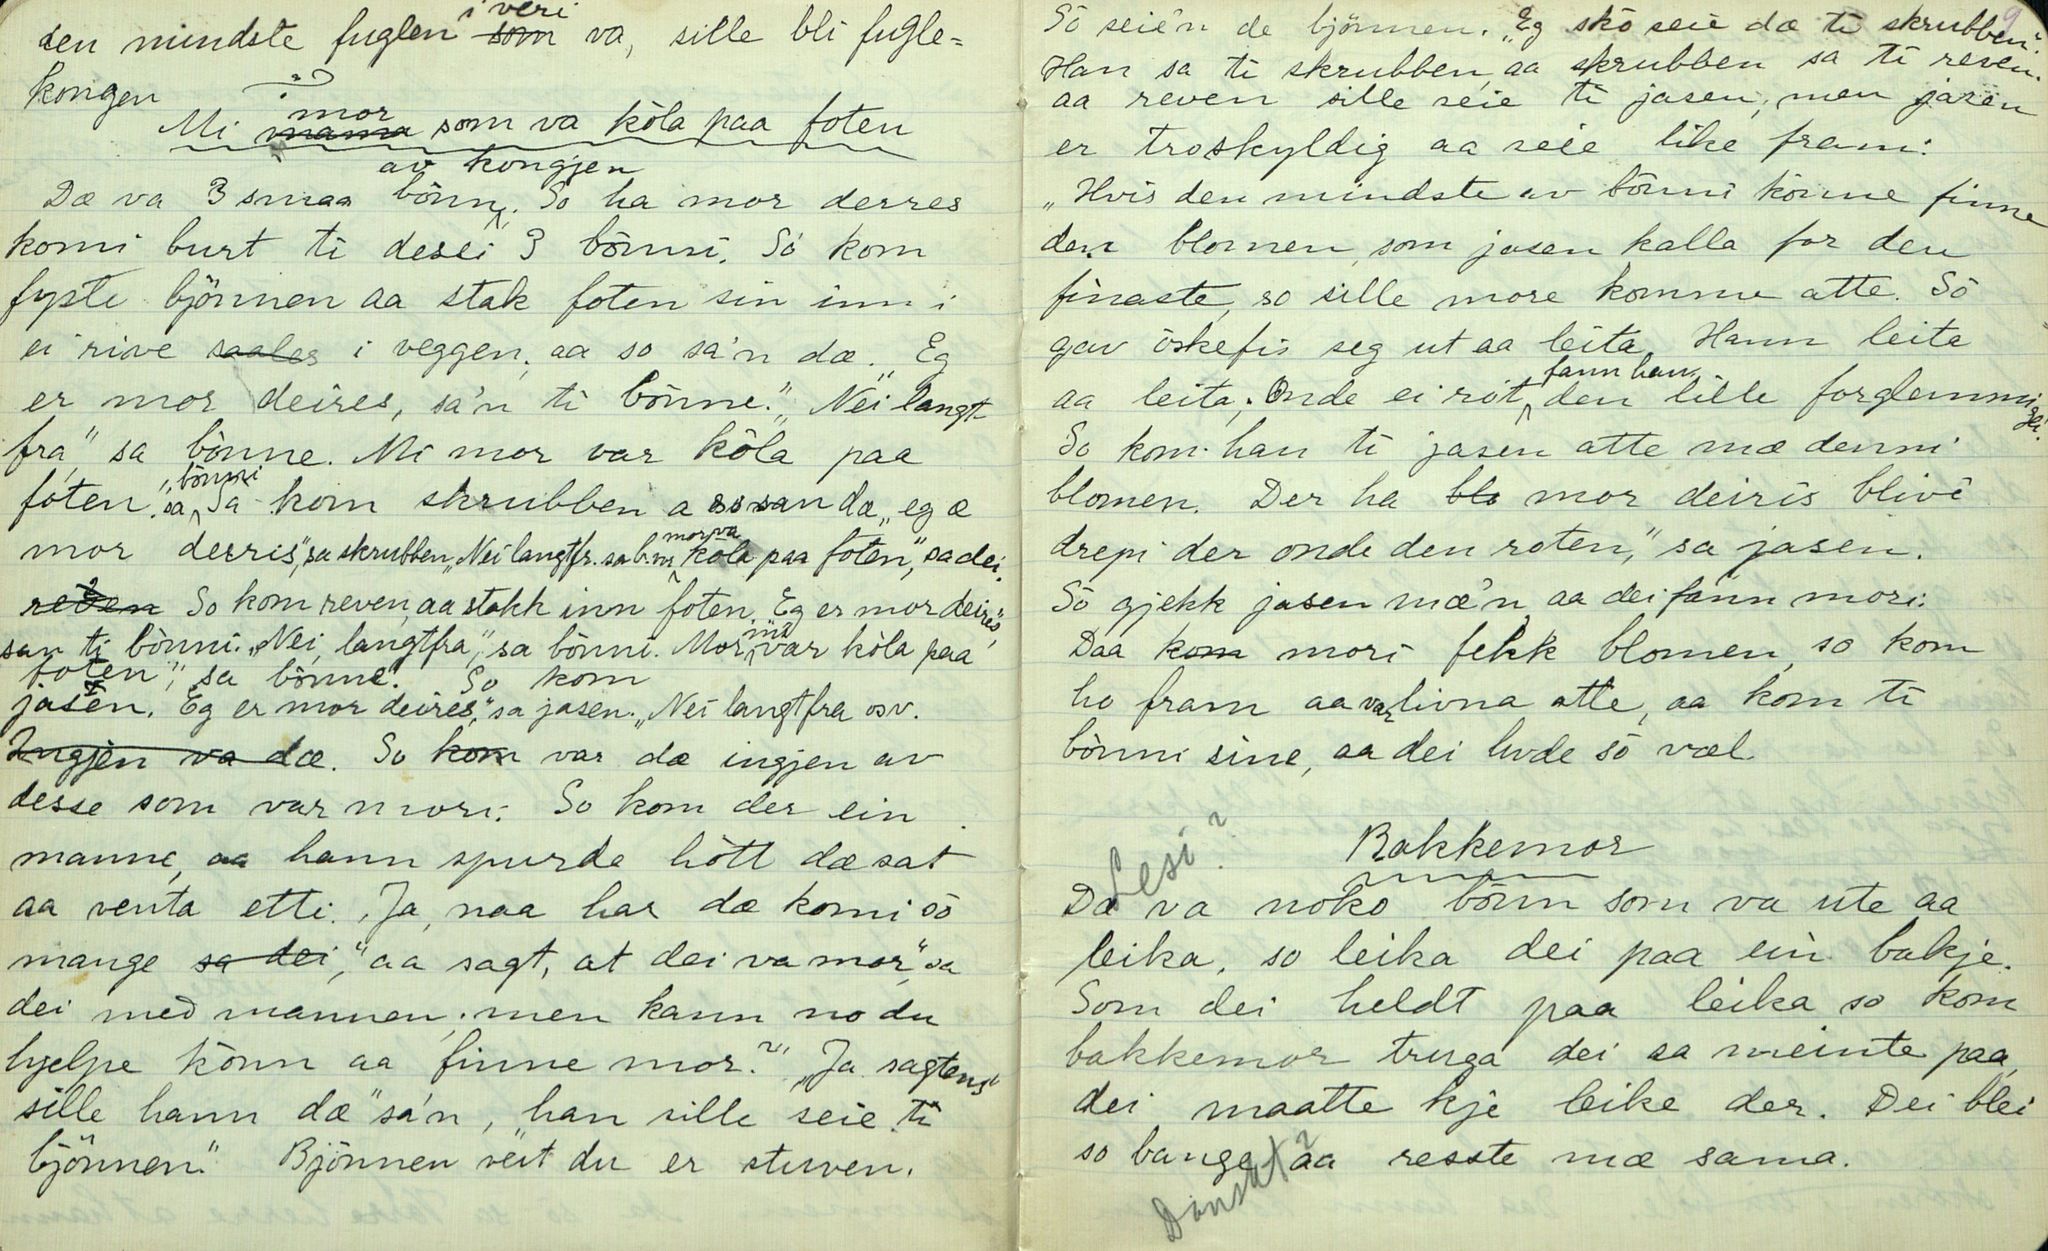 den mindste fuglen i veri som va, sille bli fugle=
kongen
Mi mama mor som va kòla paa foten
Dæ va 3 smaa bönn av kongjen. So ha mor derres
komi burt ti desei 3 bönni. Só kom
fyste bjönnen aa stak foten sin inn i
ei rive saales i veggen, aa so sa'n dæ. „Eg
er mor deires, sa'n ti bönne." „Nei langt
fra," sa bönne. Mi mor var kòla paa
foten." sa bönni Sa kom skrubben a so san dæ „eg æ
mor derris," sa skrubben, „Nei langtfr. sa b.ni mor va kòla paa foten," sa dei.
reven So kom reven, aa stakk inn foten. Eg er mor deires,"
san ti bönni. „Nei, langtfra," sa bönni. Mor mi var kòla paa
foten", sa bönne. So kom
jasen. Eg er mor deires," sa jasen. „Nei langtfra osv.
Ingjen va dæ. So kom var dæ ingjen av
desse som var mori. So kom der ein
manne, aa hann spurde hòtt dæ sat
aa venta etti. „Ja, naa har dæ komi sò
mange sa dei," aa sagt, at dei va mor," sa
dei med mannen, men kann no du
hjelpe könn aa finne mor?" „Ja sagtens"
sille hann dæ" sa'n, „han sille seie ti
bjönnen." Bjönnen veit du er stuven.
9
Sò seie'n de bjönnen. „Eg skò seie dæ ti skrubben".
Han sa ti skrubben, aa skrubben sa ti reven.
aa reven sille seie ti jasen, men jasen
er troskyldig aa seie like fram:
„Hvis den mindste av bönni könne finne
den blomen, som jasen kalla for den
finaste, so sille more komme atte. Sò
gav öskefis seg ut aa leita. Hann leita
aa leita. Onde ei rót fann han den lille forglemmi
gei.
So kom han ti jasen atte mæ denni
blomen. Der ha blo mor deiris blivi
drepi der onde den roten," sa jasen.
Sò gjekk jasen mæ'n, aa dei fann mori.
Daa kom mori fekk blomen, so kom
ho fram aa var livna atte, aa kom ti
bönni sine, aa dei livde sò væl.
Lesi?
Bakkemor
Dæ va noko bönn som va ute aa
leika, so leika dei paa ein bakje.
Som dei heldt paa leika so kom
bakkemor truga dei aa meinte paa,
dei maatte kje leike der. Dei blei
so bange aa resste mæ sama.